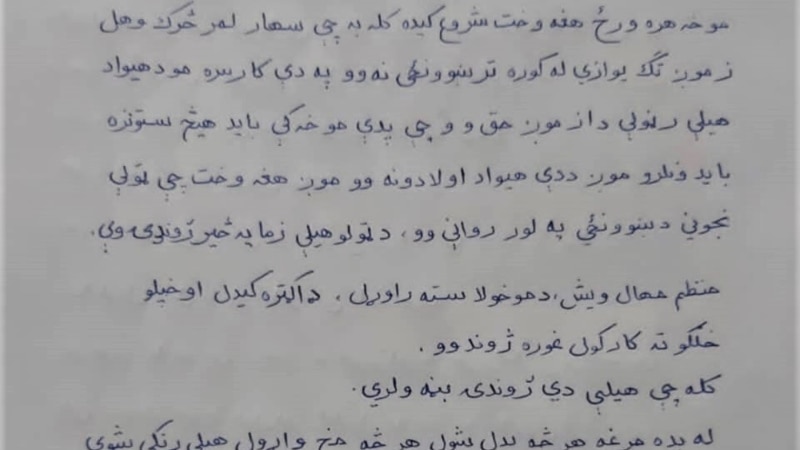 موخه هره ورځ هغه وخت شروع کیده کله به چې سهار لمر څرک وهل
زمون تګ یوازې له کوره تر ښوونځي نه وو په دې کار سره مو د هیواد
هیلې رغولې دا زمون حق وو چې پدې موخه کې باید هیڅ ستونزه
باید ونلرو مون ددې هیواد اولادونه وو مون هغه وخت چې ټولې
نجونې د ښوونځي په لور روانې وو، د ټولو هیلې زما په څیر ژوندۍ وې.
منظم مهال ویش، د موخو لاسته راوړل، ډاکټره کیدل او خپلو
خلکو ته کار کول غوره ژوند وو.
کله چې هیلې دې ژوندۍ بڼه ولري.
له بده مرغه هر څه بدل شول هر څه مخ واړول هیلې رنګې شوې